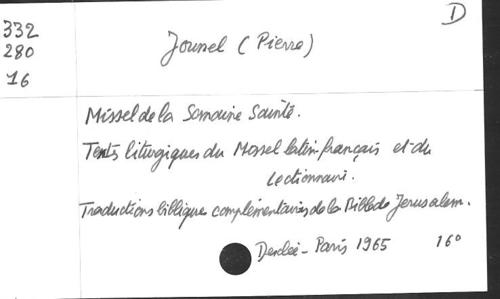 D
332
280
16
Jounel (Pierre)
Missel de la Semaine Sainte.
Textes liturgiques du Missel latin-français et du
Lectionnaire.
Traductions bibliques complémentaires de la Bible de Jerusalem.
Desclée - Paris 1965 16°